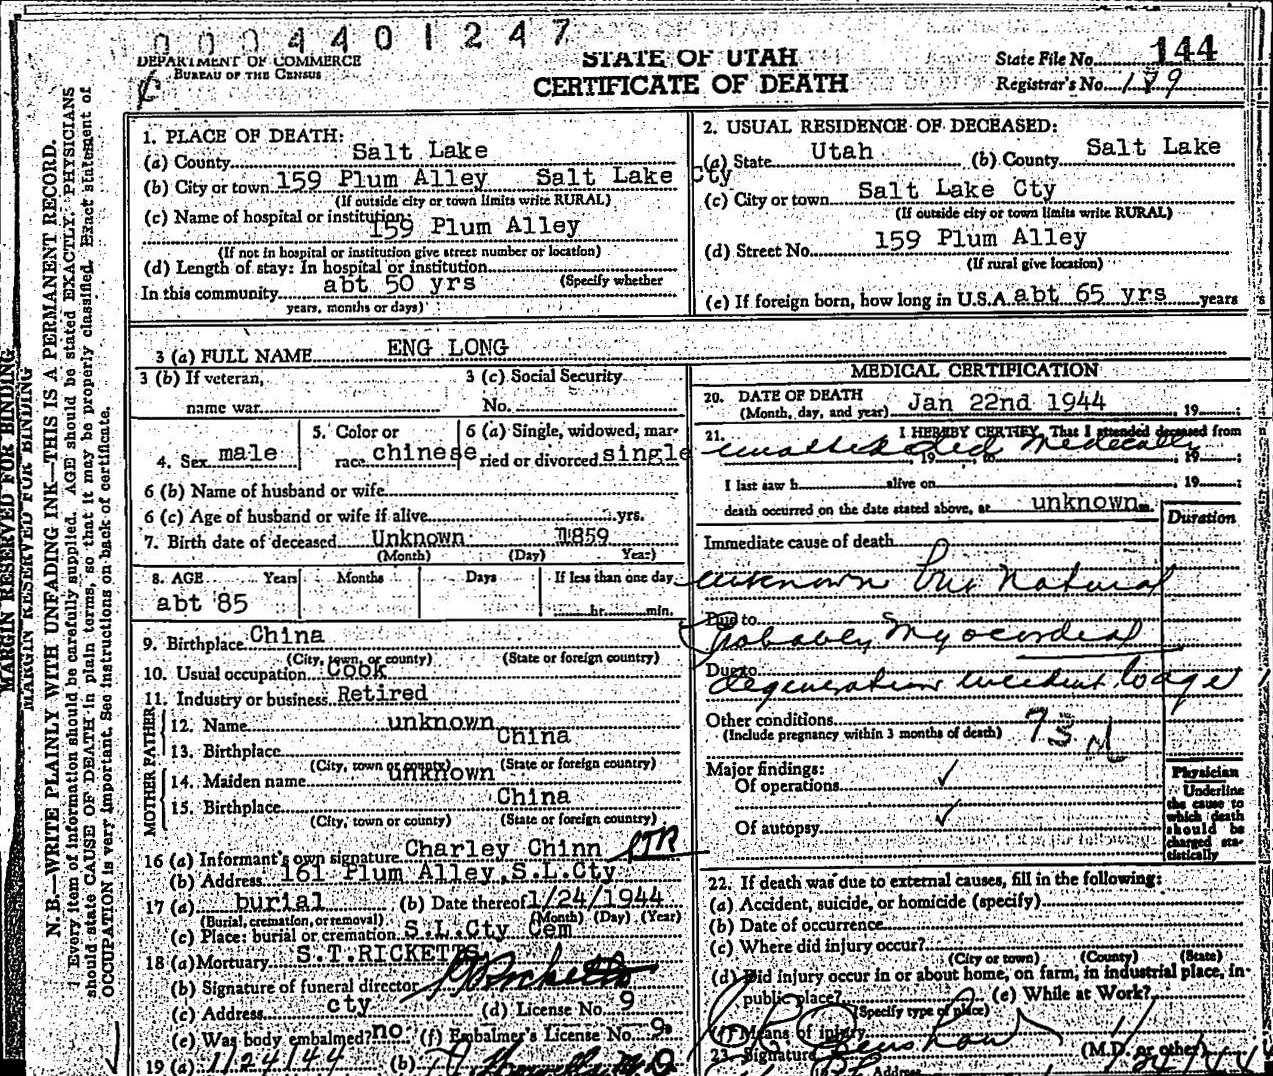 0004401247
DEPARTMENT OF COMMERCE
BUREAU OF THE CENSUS
STATE OF UTAH
CERTIFICATE OF DEATH
State File No. 144
Registrar's No. 189
MARGIN RESERVED FOR BINDING
MARGIN RESERVED FOR BINDING
N. B.—WRITE PLAINLY WITH UNFADING INK—THIS IS A PERMANENT RECORD.
Every item of information should be carefully supplied. AGE should be stated EXACTLY. PHYSICIANS
should state CAUSE OF DEATH in plain terms, so that it may be properly classified. Exact statement of
OCCUPATION is very important. See instructions on back of certificate.
1. PLACE OF DEATH:
(a) County Salt Lake
(b) City or town 159 Plum Alley Salt Lake Cty
(If outside city or town limits write RURAL)
(c) Name of hospital or institution:
159 Plum Alley
(If not in hospital or institution give street number or location)
(d) Length of stay: In hospital or institution
(Specify whether
In this community abt 50 yrs
years, months or days)
2. USUAL RESIDENCE OF DECEASED:
(a) State Utah (b) County Salt Lake
(c) City or town Salt Lake Cty
(If outside city or town limits write RURAL)
(d) Street No. 159 Plum Alley
(If rural give location)
(e) If foreign born, how long in U.S.A. abt 65 yrs years
3 (a) FULL NAME ENG LONG
3 (b) If veteran,
name war
3 (c) Social Security
No.
4. Sex male
5. Color or
race chinese
6 (a) Single, widowed, mar-
ried or divorced single
6 (b) Name of husband or wife
6 (c) Age of husband or wife if alive yrs.
7. Birth date of deceased Unknown 1859
(Month) (Day) Year)
8. AGE Years Months Days If less than one day
abt 85 hr. min.
9. Birthplace China
(City, town, or county) (State or foreign country)
10. Usual occupation Cook
11. Industry or business Retired
FATHER
12. Name unknown
13. Birthplace China
(City, town or county) (State or foreign country)
MOTHER
14. Maiden name unknown
15. Birthplace China
(City, town or county) (State or foreign country)
16 (a) Informant's own signature Charley Chinn
(b) Address 161 Plum Alley, S.L.Cty
17 (a) burial (b) Date thereof 1/24/1944
(Burial, cremation, or removal) (Month) (Day) (Year)
(c) Place: burial or cremation S.L.Cty Cem
18 (a) Mortuary S.T.RICKETTS
(b) Signature of funeral director Ricketts
(c) Address cty (d) License No. 9
(e) Was body embalmed? no (f) Embalmer's License No. 9
19 (a) 1/24/44 (b)
MEDICAL CERTIFICATION
20. DATE OF DEATH
(Month, day, and year) Jan 22nd 1944 19
21. I HEREBY CERTIFY, That I attended deceased from
unattended medically
19 to 19
I last saw h alive on 19
death occurred on the date stated above, at unknown m.
Duration
Immediate cause of death
unknown but natural
Due to
Probably Myocardial
Due to
degeneration incident to age
Other conditions
(Include pregnancy within 3 months of death)
Major findings:
Of operations ✓
Of autopsy ✓
Physician
Underline
the cause to
which death
should be
charged sta-
tistically
22. If death was due to external causes, fill in the following:
(a) Accident, suicide, or homicide (specify)
(b) Date of occurrence
(c) Where did injury occur?
(City or town) (County) (State)
(d) Did injury occur in or about home, on farm, in industrial place, in-
public place? (e) While at Work?
(Specify type of place)
(f) Means of injury
23. Signature (M.D. or other)
Address